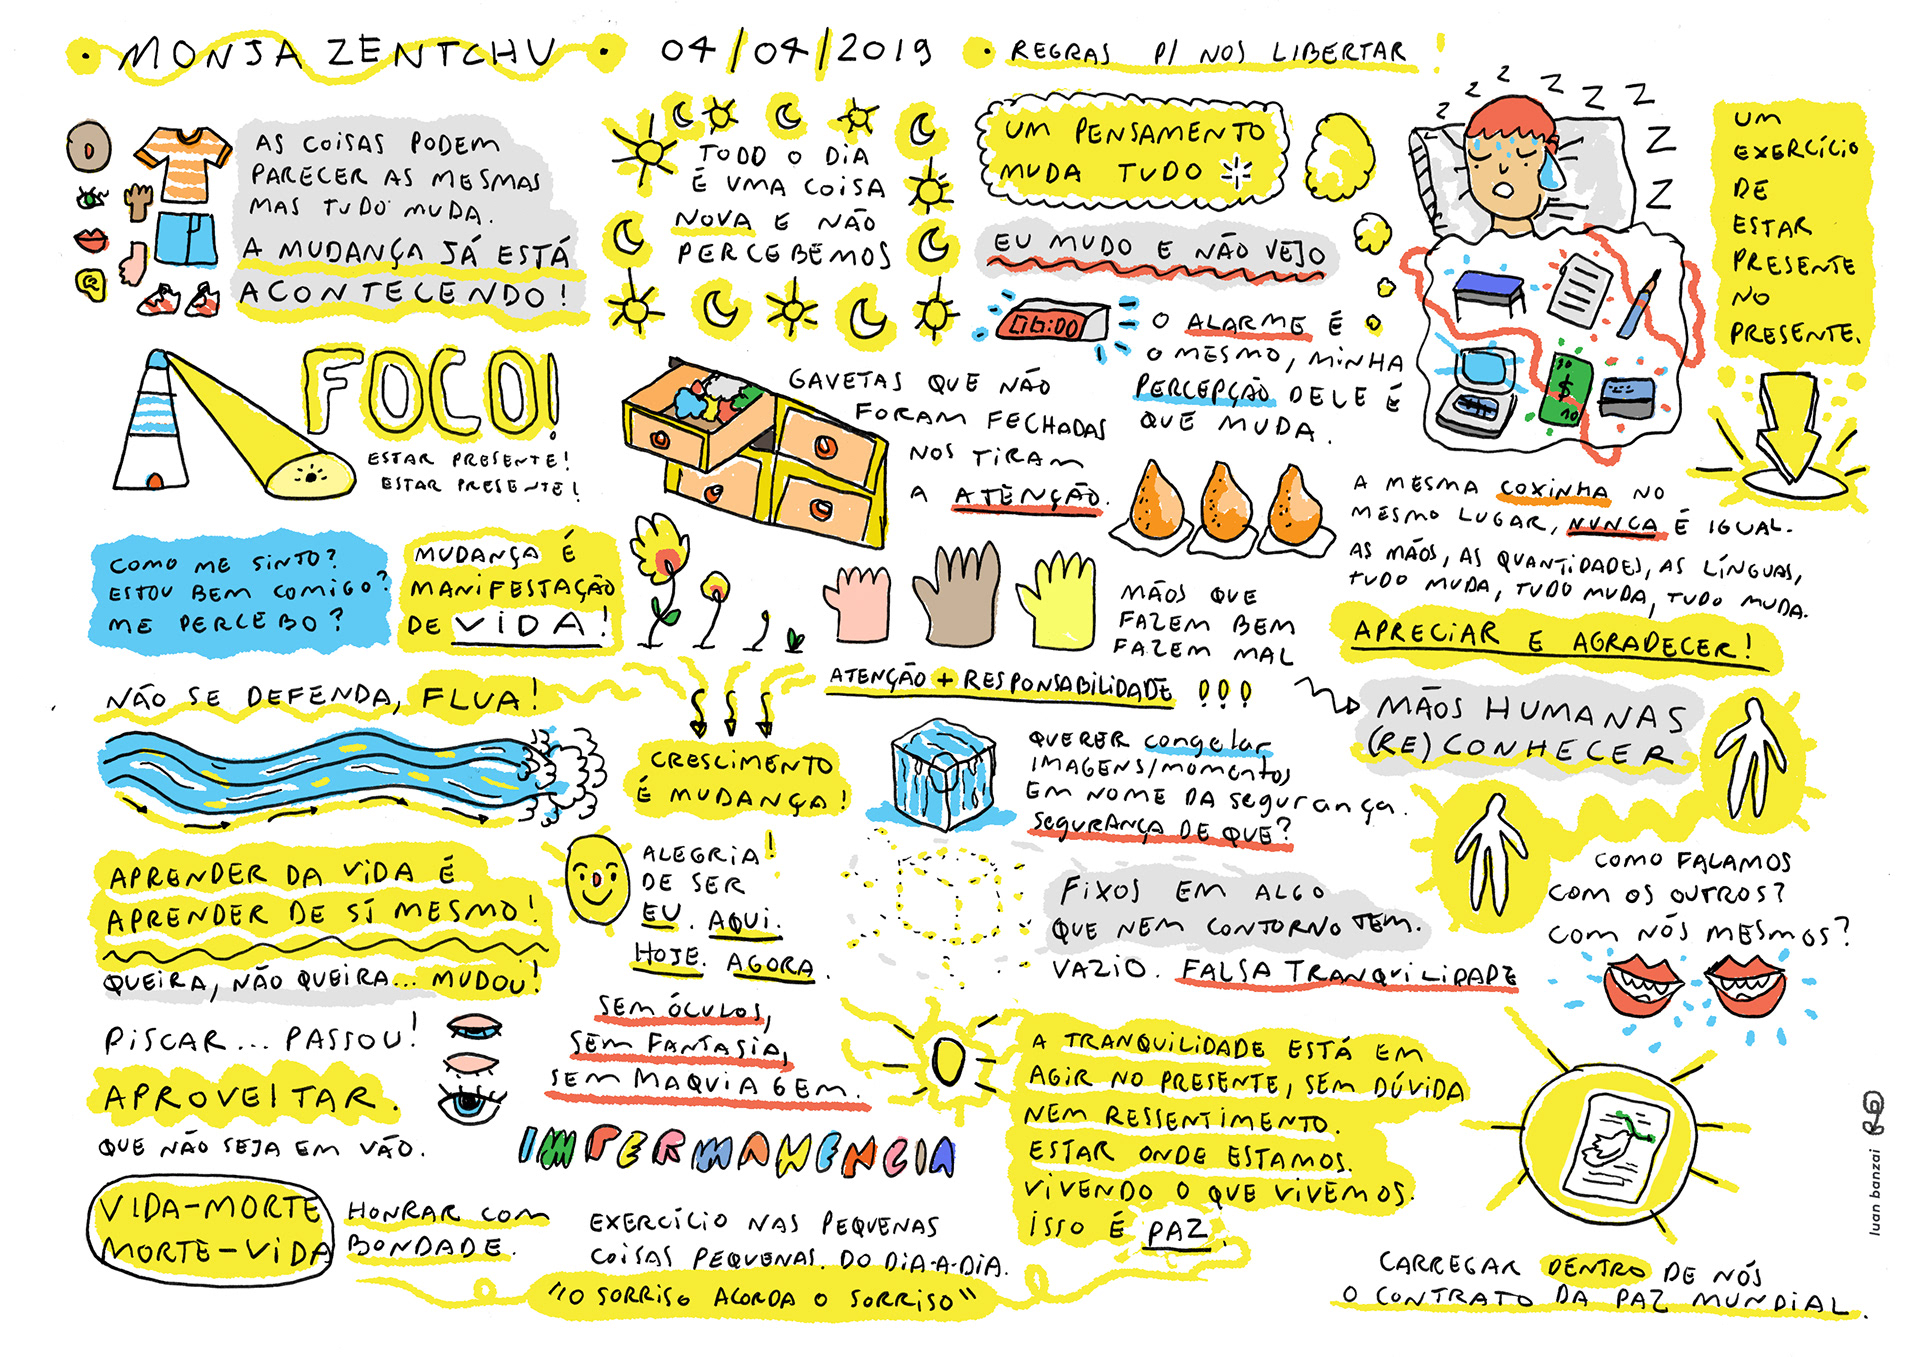 MONJA ZENTCHU
04/04/2019
REGRAS P/ NOS LIBERTAR!
AS COISAS PODEM
PARECER AS MESMAS
MAS TUDO MUDA.
A MUDANÇA JÁ ESTÁ
ACONTECENDO!
TODO O DIA
É UMA COISA
NOVA E NÃO
PERCEBEMOS
UM PENSAMENTO
MUDA TUDO
EU MUDO E NÃO VEJO
06:00
O ALARME É
O MESMO, MINHA
PERCEPÇÃO DELE É
QUE MUDA.
Z Z Z Z Z Z Z Z Z
$
10
UM
EXERCÍCIO
DE
ESTAR
PRESENTE
NO
PRESENTE.
FOCO!
ESTAR PRESENTE!
ESTAR PRESENTE!
GAVETAS QUE NÃO
FORAM FECHADAS
NOS TIRAM
A ATENÇÃO.
A MESMA COXINHA NO
MESMO LUGAR, NUNCA É IGUAL.
AS MÃOS, AS QUANTIDADES, AS LÍNGUAS,
TUDO MUDA, TUDO MUDA, TUDO MUDA.
APRECIAR E AGRADECER!
COMO ME SINTO?
ESTOU BEM COMIGO?
ME PERCEBO?
MUDANÇA É
MANIFESTAÇÃO
DE VIDA!
MÃOS QUE
FAZEM BEM
FAZEM MAL
ATENÇÃO + RESPONSABILIDADE !!!
MÃOS HUMANAS
(RE)CONHECER
NÃO SE DEFENDA, FLUA!
CRESCIMENTO
É MUDANÇA!
QUERER congelar
IMAGENS/momentos
EM NOME DA segurança.
SEGURANÇA DE QUE?
COMO FALAMOS
COM OS OUTROS?
COM NÓS MESMOS?
APRENDER DA VIDA É
APRENDER DE SÍ MESMO!
QUEIRA, NÃO QUEIRA... MUDOU!
ALEGRIA!
DE SER
EU. AQUI.
HOJE. AGORA.
FIXOS EM ALGO
QUE NEM CONTORNO TEM.
VAZIO. FALSA TRANQUILIDADE
PISCAR... PASSOU!
APROVEITAR.
QUE NÃO SEJA EM VÃO.
SEM ÓCULOS,
SEM FANTASIA,
SEM MAQUIAGEM.
IMPERMANENCIA
A TRANQUILIDADE ESTÁ EM
AGIR NO PRESENTE, SEM DÚVIDA
NEM RESSENTIMENTO.
ESTAR ONDE ESTAMOS.
VIVENDO O QUE VIVEMOS.
ISSO É PAZ.
VIDA-MORTE
MORTE-VIDA
HONRAR COM
BONDADE.
EXERCÍCIO NAS PEQUENAS
COISAS PEQUENAS. DO DIA-A-DIA.
"O SORRISO ACORDA O SORRISO"
CARREGAR DENTRO DE NÓS
O CONTRATO DA PAZ MUNDIAL.
luan banzai